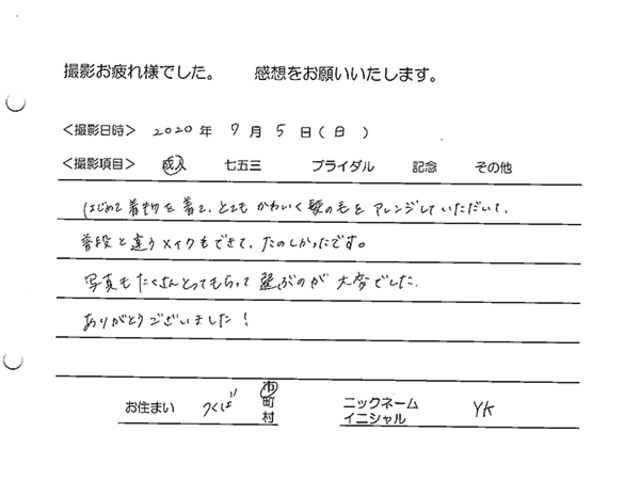 撮影お疲れ様でした。 感想をお願いいたします。
<撮影日時> 2020年 7月 5日(日)
<撮影項目> 成人 七五三 ブライダル 記念 その他
はじめて着物を着て、とてもかわいく髪の毛をアレンジしていただいて、
普段と違うメイクもできて、たのしかったです。
写真もたくさんとってもらって選ぶのが大変でした。
ありがとうございました!
お住まい つくば 市 町 村 ニックネーム イニシャル YK